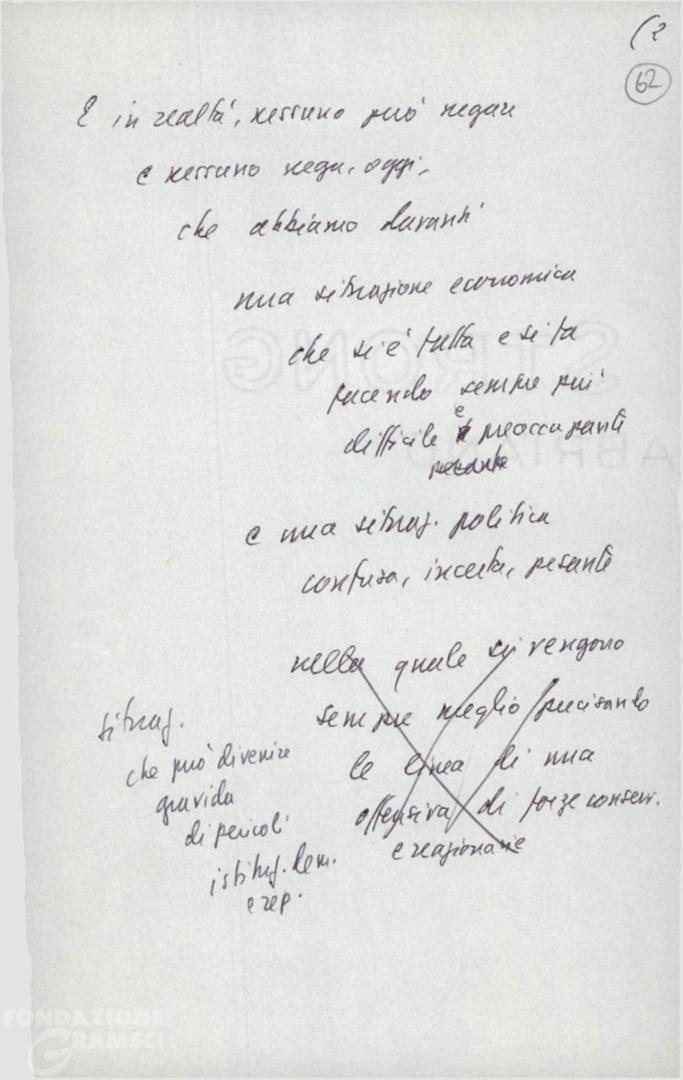 (2
62
E in realtà, nessuno può negare
e nessuno nega, oggi,
che abbiamo davanti
una situazione economica
che si è fatta e si fa
facendo sempre più
difficile e preoccupante
pesante
e una situaz. politica
confusa, incerta, pesante
nella quale si vengono
sempre meglio precisando
le linea di una
offensiva di forze conserv.
e reazionarie
situaz.
che può divenire
gravida
di pericoli
istituz. dem.
e rep.
STRONG
FABRIANO
FONDAZIONE
GRAMSCI